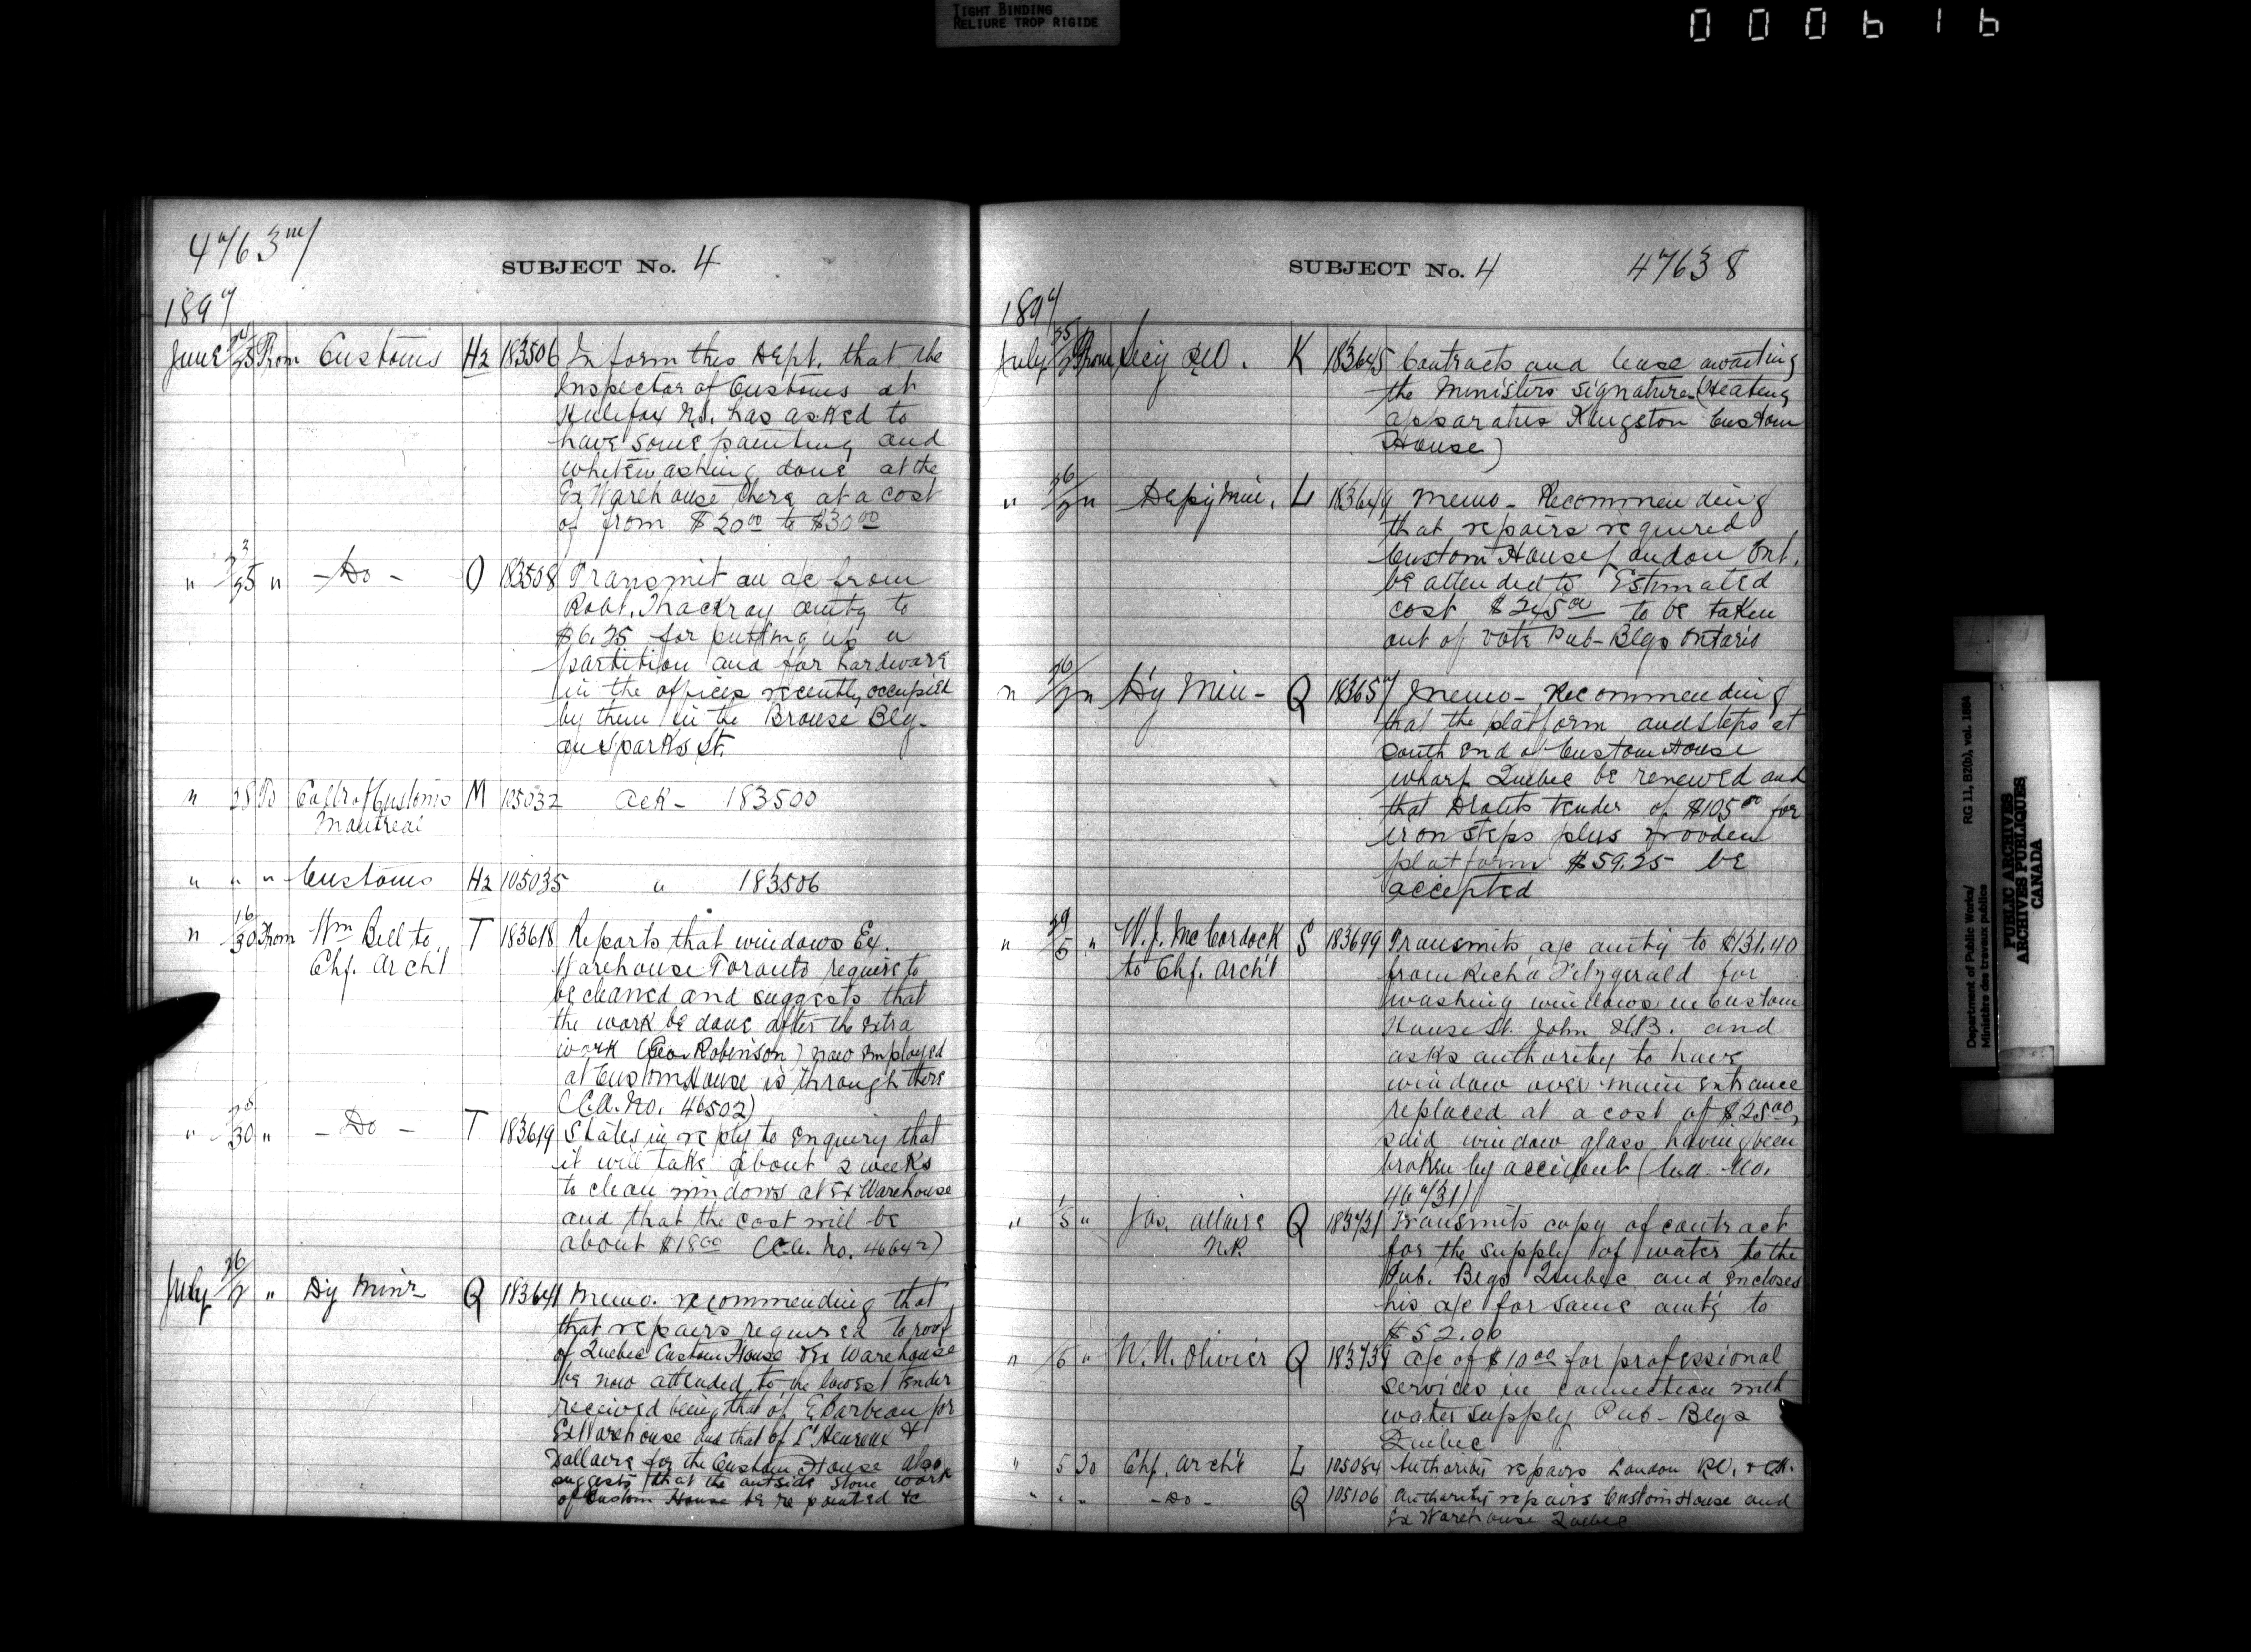 TIGHT BINDING
RELIURE TROP RIGIDE
000616
47637
SUBJECT No. 4
1897
June 24/25 From Customs H2 183506 Inform this Dept. that the
Inspector of Customs at
Halifax N.S. has asked to
have some painting and
whitewashing done at the
Ex Warehouse there at a cost
of from $20.00 to $30.00
" 23/25 " - Do - O 183508 Transmit an a/c from
Robt. Thackray amtg to
$6.25 for putting up a
partition and for hardware
in the offices recently occupied
by them in the Brouse Blg.
on Sparks St.
" 28 To Collr of Customs M 105032 Ack - 183500
Montreal
" " " Customs H2 105035 " 183506
" 16/30 From Wm Bell to T 183618 Reports that windows Ex.
Chf. Archt Warehouse Toronto require to
be cleaned and suggests that
the work be done after the extra
work (Geo. Robinson) now employed
at Custom House is through there
(C.A. No. 46502)
" 28/30 " - Do - T 183619 States in reply to enquiry that
it will take about 2 weeks
to clean windows at Ex Warehouse
and that the cost will be
about $18.00 (C.A. No. 46642)
July 26/2 " Dy Minr Q 183641 Memo. recommending that
that repairs required to roof
of Quebec Custom House & Ex Warehouse
be now attended to the lowest tender
received being that of E Barbeau for
Ex Warehouse and that of L'Heureux &
Dallaire for the Custom House also
suggests that the outside stone work
of Custom House be re pointed &c
SUBJECT No. 4 47638
1897
July 25/2 From Secy P.W.D. K 183645 Contracts and lease awaiting
the Ministers signature (Heating
apparatus Kingston Custom
House)
" 26/2 " Depy Min. L 183649 Memo - Recommending
that repairs required
Custom House London Ont.
be attended to Estimated
cost $245.00 to be taken
out of vote Pub- Blgs Ontario
" 26/2 " Dy Min - Q 183657 Memo - Recommending
that the platform and steps at
south end of Custom House
wharf Quebec be renewed and
that tender of $105.00 for
iron steps plus wooden
platform $59.25 be
accepted
" 29/5 " W. J. McCordock S 183699 Transmits a/c amtg to $131.40
to Chf. Archt from Richd Fitzgerald for
washing windows in Custom
House St. John N.B. and
asks authority to have
window over main entrance
replaced at a cost of $25.00,
said window glass having been
broken by accident (C.A. No.
46731)
" 1/5 " Jas. Allaire Q 183721 Transmits copy of contract
N.P. for the supply of water to the
Pub. Blgs Quebec and encloses
his a/c for same amtg to
$52.00
" /5 " W. N. Olivier Q 183738 a/c of $10.00 for professional
services in connection with
water supply Pub- Blgs
Quebec
" 5 To Chf. Archt L 105084 Authority repairs London P.O. & C.H.
" " " - Do - Q 105106 Authority repairs Custom House and
Ex Warehouse Quebec
Department of Public Works/
Ministère des travaux publics
RG 11, B2(b), vol. 1684
PUBLIC ARCHIVES
ARCHIVES PUBLIQUES
CANADA